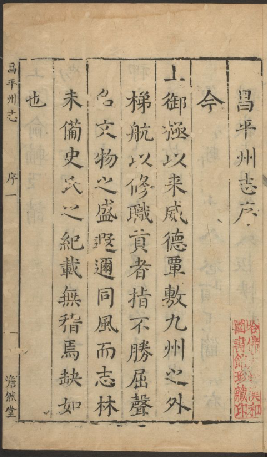 昌平州志序
今
上御極以来威德覃敷九州之外
梯航以修職貢者指不勝屈聲
名文物之盛遐邇同風而志林
未備史氏之紀載無稽焉缺如
也
昌平州志
序
一
澹然堂